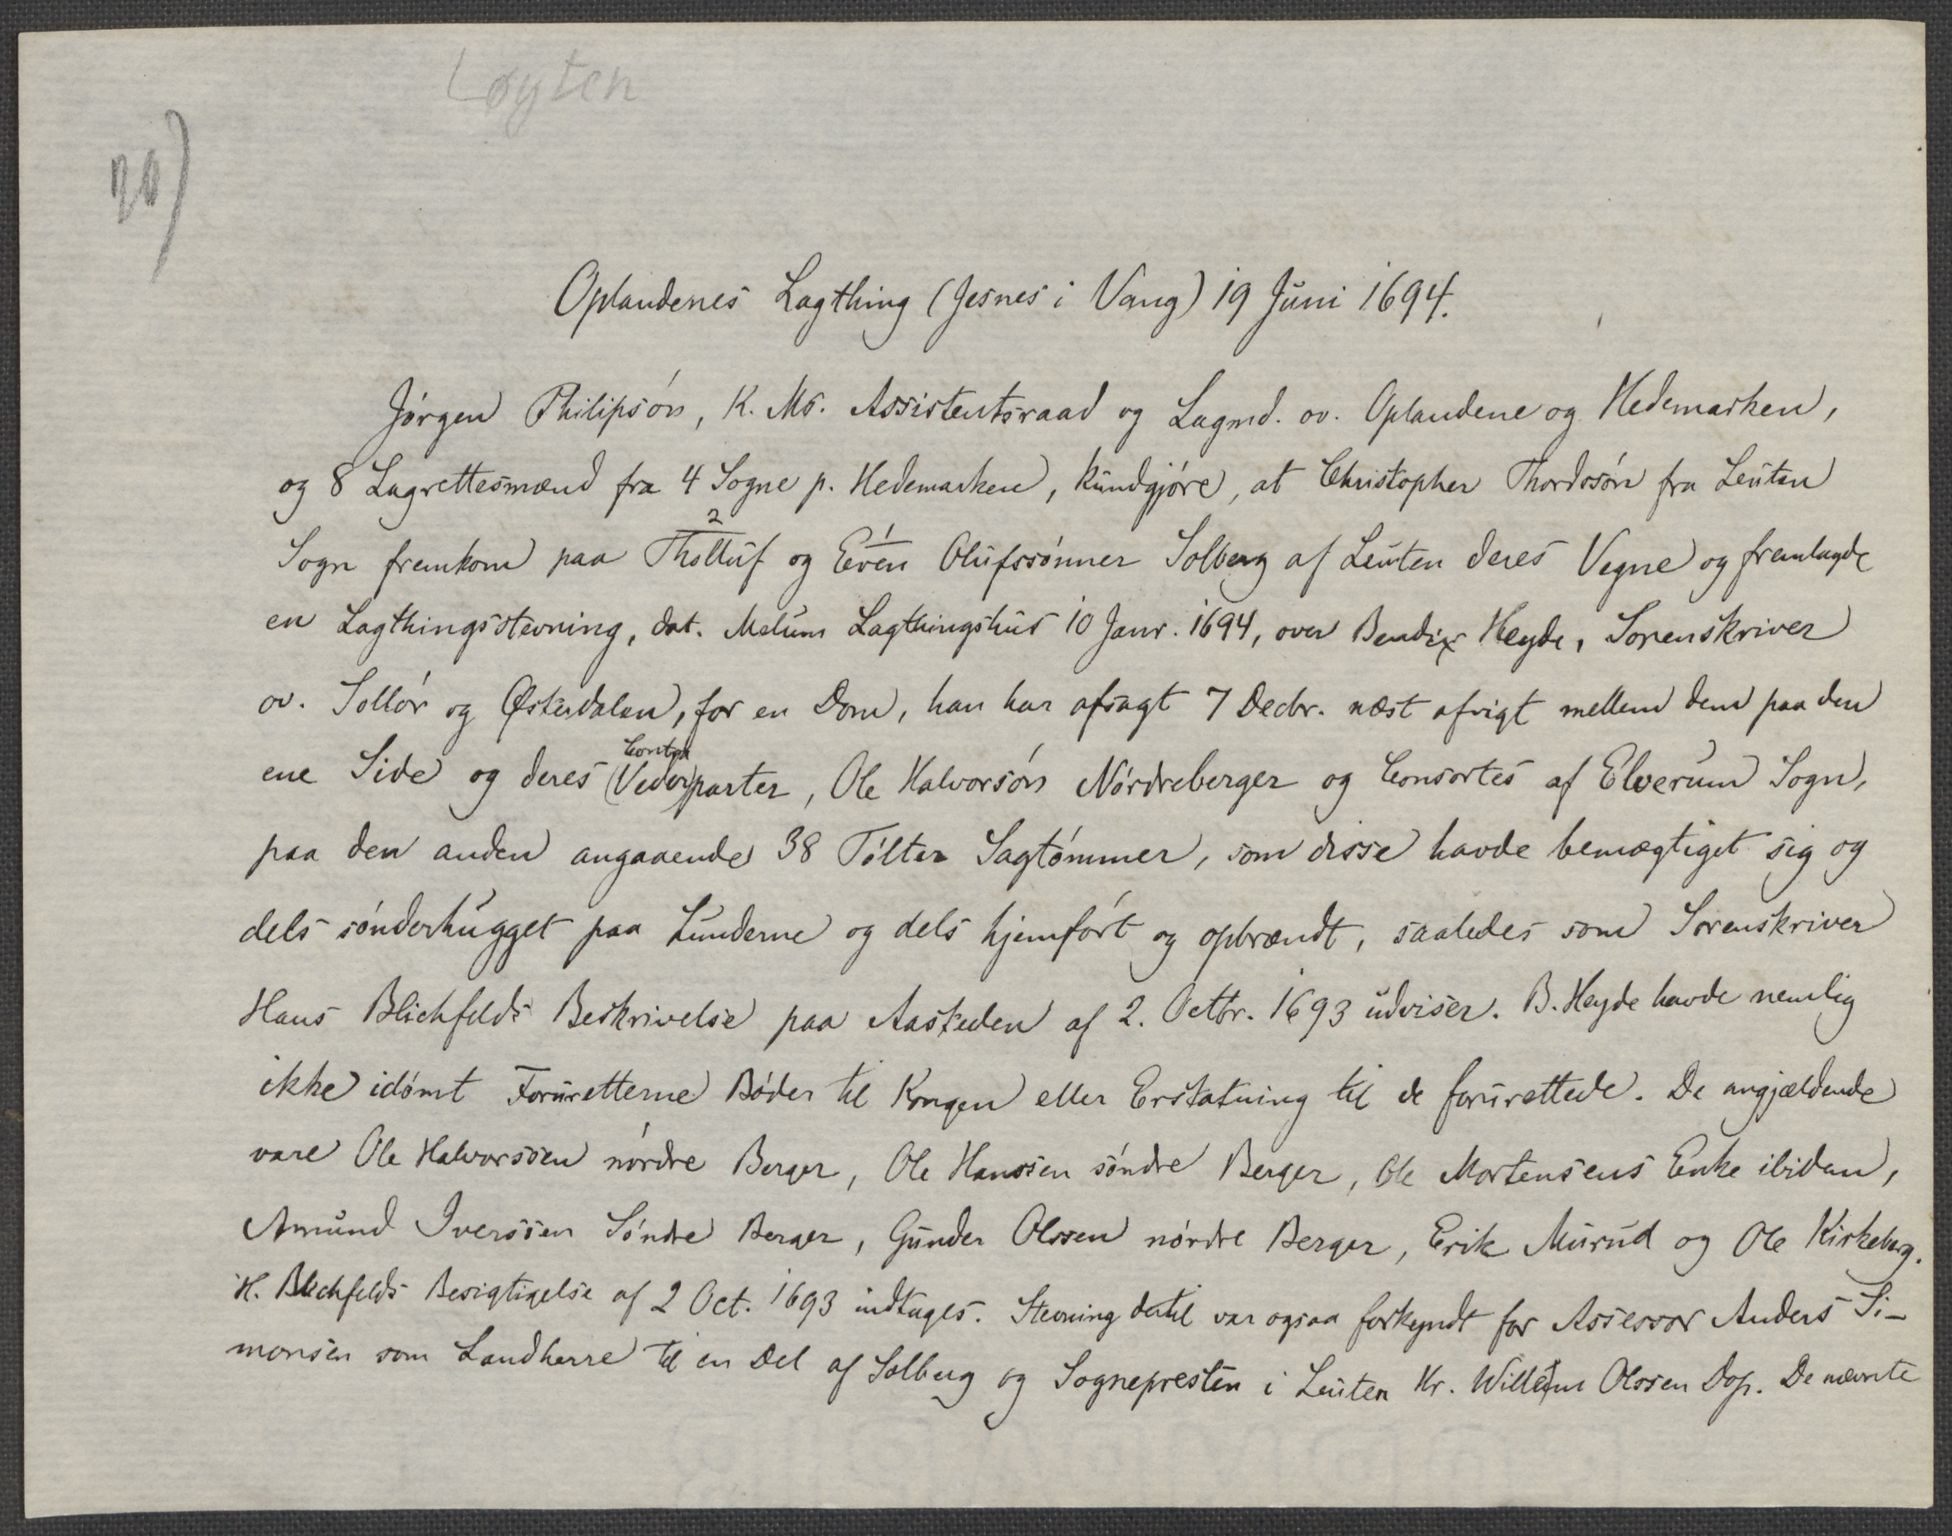 Løyten
20)
Oplandenes Lagthing (Jesnes i Vang) 19 Juni 1694.
Jørgen Philipsøn, K. Ms. Assistentsraad og Lagmd. ov. Oplandene og Hedemarken,
og 8 Lagrettesmænd fra 4 Sogne p. Hedemarken, kundgjøre, at Christopher Thordssøn fra Leuten
2 1
Sogn fremkom paa Tholluf og Even Olufssønner Solberg af Leuten deres Vegne og fremlagde
en Lagthingsstevning, dat. Melum Lagthingshus 10 Janr. 1694, over Bendix Heyde, Sorenskriver
ov. Sollør og Østerdalen, for en Dom, han har afsagt 7 Decbr. næst afvigt mellem dem paa den
Contra
ene Side og deres (Veder)parter, Ole Halvorsøn Nørdreberger og Consortes af Elverum Sogn,
paa den anden angaaende 38 Tølter Sagtømmer, som disse havde bemægtiget sig og
dels sønderhugget paa Lunderne og dels hjemført og opbrændt, saaledes som Sorenskriver
Hans Blichfelds Beskrivelse paa Aasteden af 2. Octbr. 1693 udviser. B. Heyde havde nemlig
ikke idømt Foruretterne Bøder til Kongen eller Erstatning til de forurettede. De angjældende
vare Ole Halvorssen nørdre Berger, Ole Hanssen søndre Berger, Ole Mortensens Enke ibidem,
Amund Iverssen Søndre Berger, Gunder Olssen nørdre Berger, Erik Murud og Ole Kirkeberg.
H. Blichfelds Besigtigelse af 2 Oct. 1693 indtages. Stevning dertil var ogsaa forkyndt for Assessor Anders Si-
monsen som Landherre til en Del af Solberg og Sognepresten i Leuten Hr. Willem Olssen Dop. De nævnte